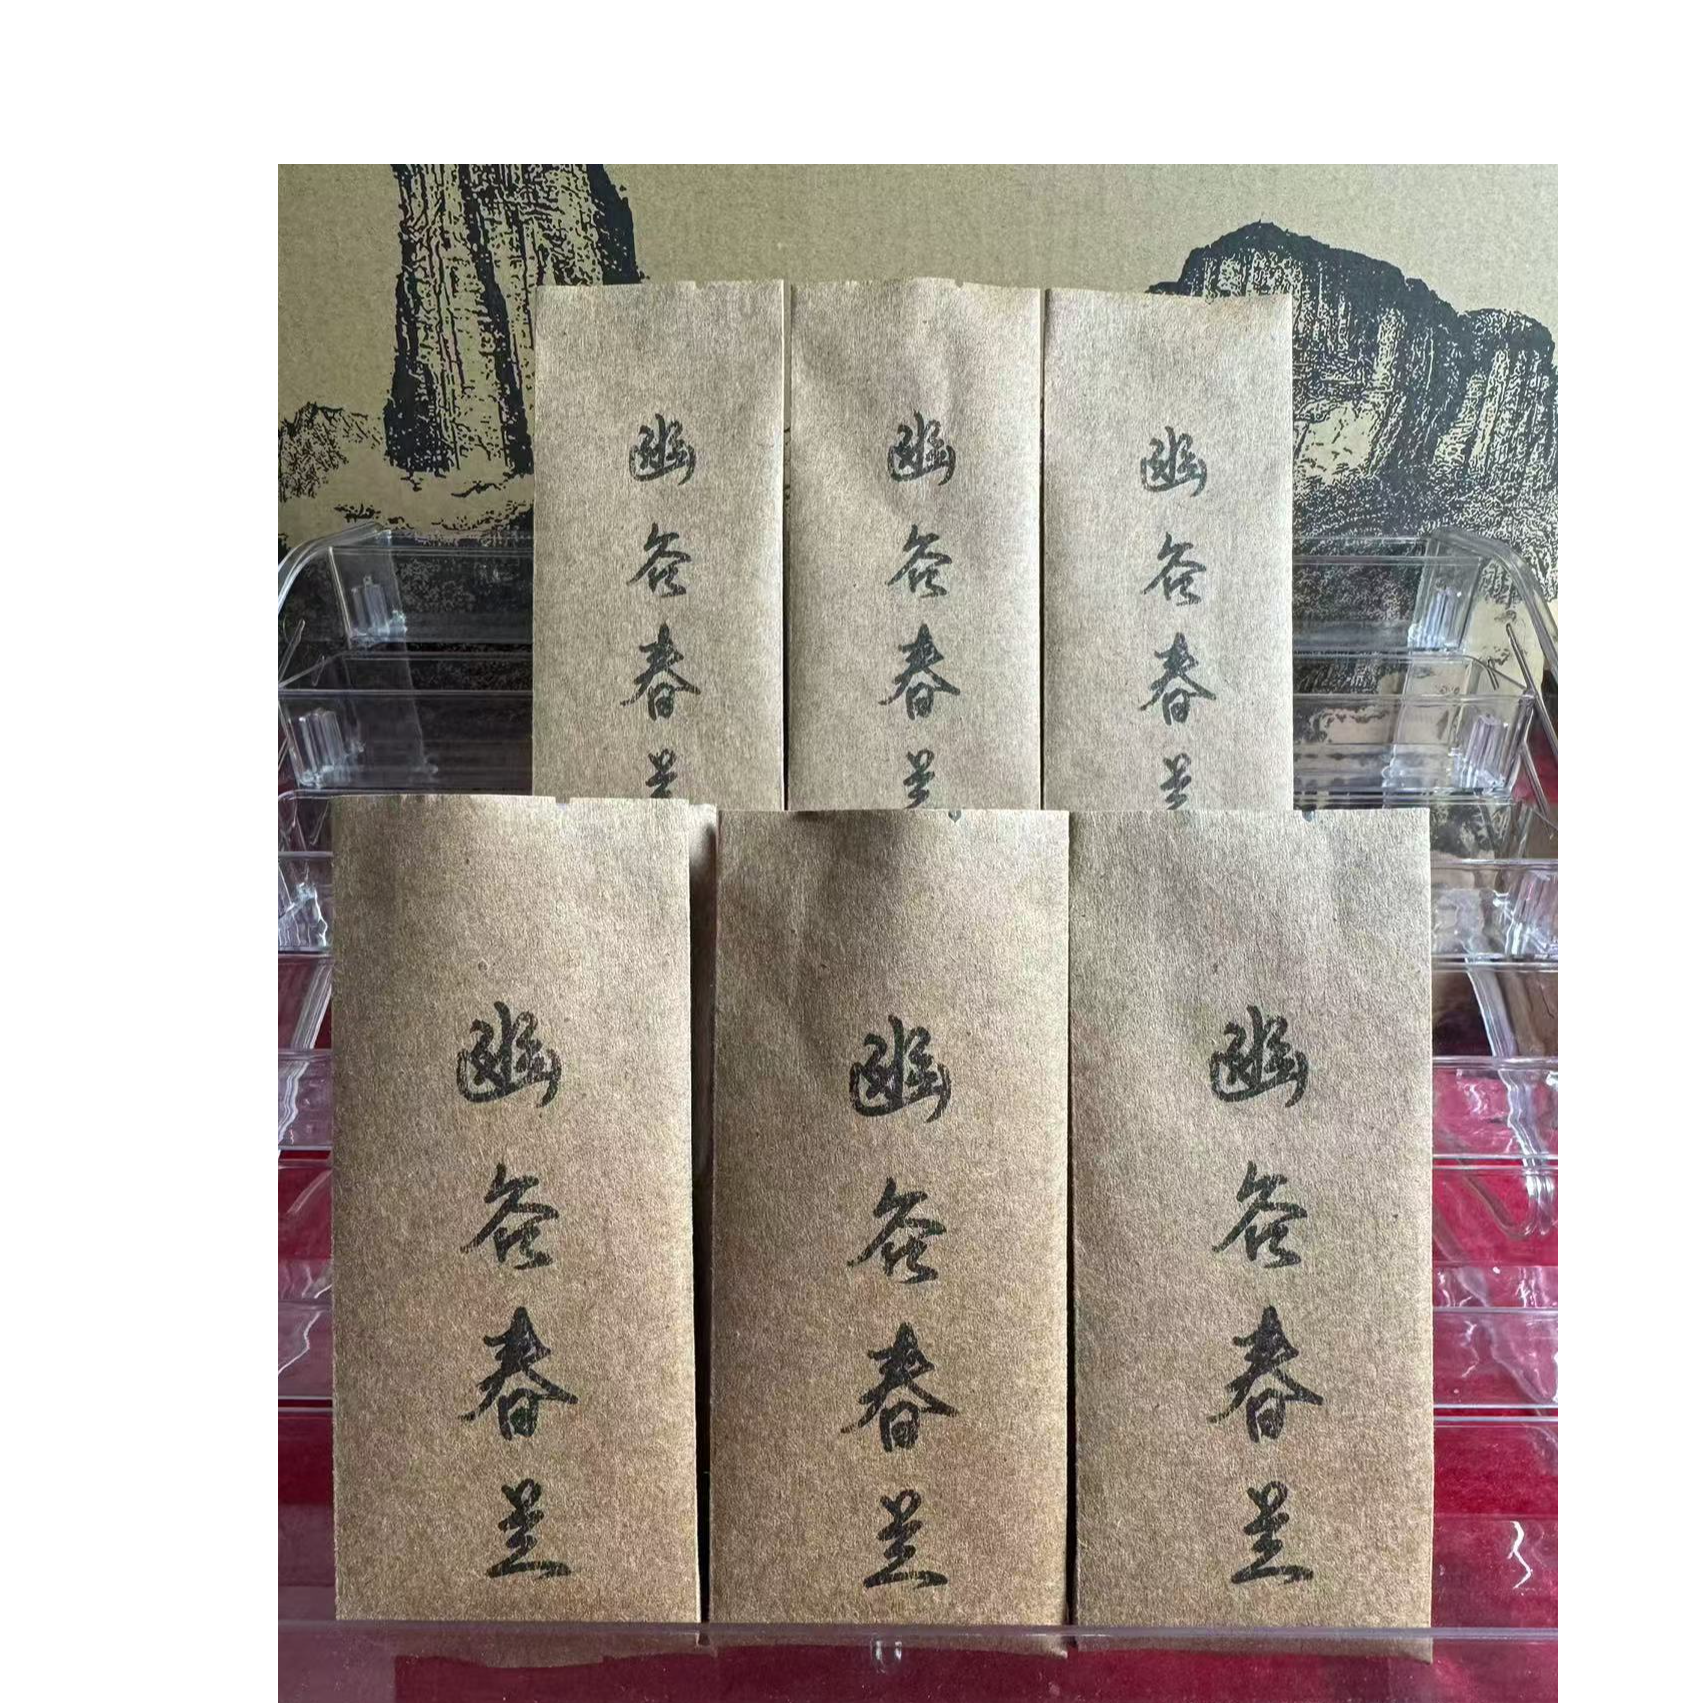 幽谷春兰
幽谷春兰
幽谷春兰
幽谷春兰
幽谷春兰
幽谷春兰